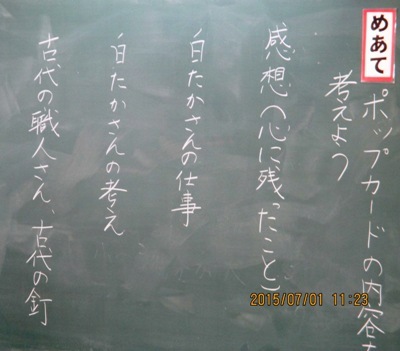 めあて
ポップカードの内容を
考えよう
感想(心に残ったこと)
白たかさんの仕事
白たかさんの考え
古代の職人さん、古代の釘
2015/07/01 11:23